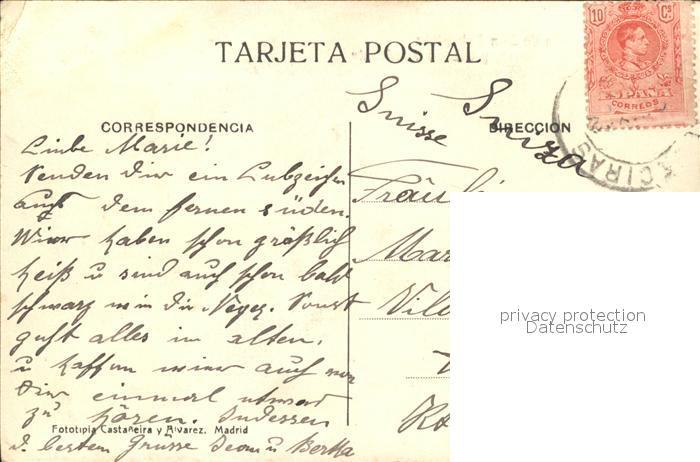 TARJETA POSTAL
10 Cs
ESPAÑA
CORREOS
CIRAS
Suisse Suiza
CORRESPONDENCIA
DIRECCION
Liebe Marie!
Senden Dir ein Lebzeichen
aus dem fernen Süden.
Wir haben schon gräßlich
heiß u sind auch schon bald
schwarz wie die Neger. Sonst
geht alles im alten,
u hoffen wir auch von
Dir einmal etwas
zu hören. Indessen
d. besten Grüsse u Bertha
Fototipia Castañeira y Alvarez. Madrid
Fräu
Mar
privacy protection
Datenschutz